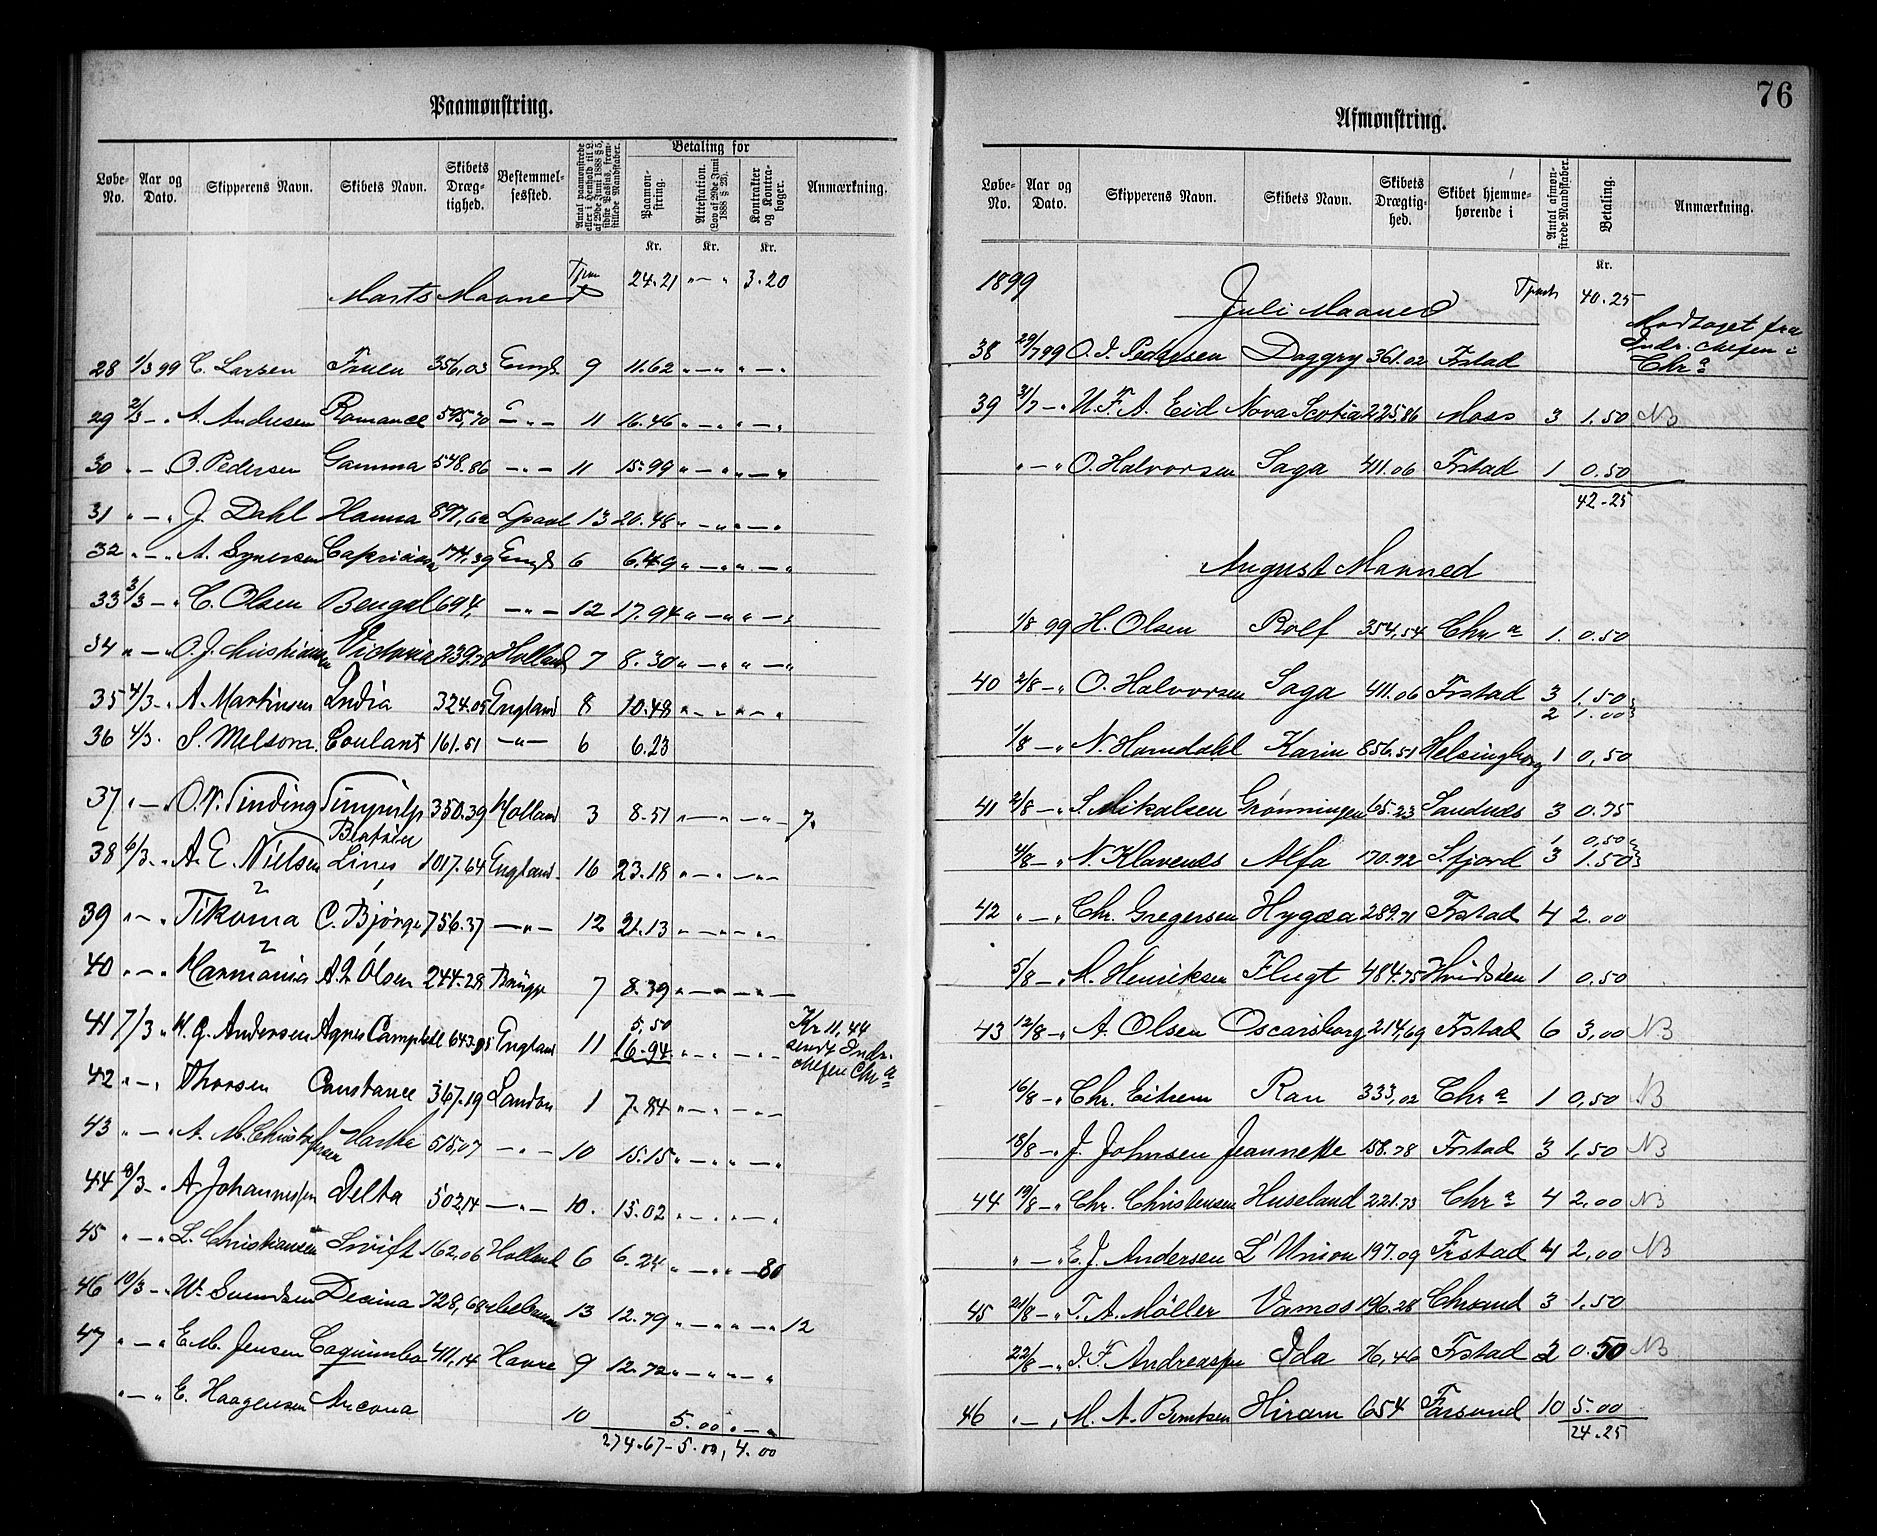 Paamønstring.
Løbe-No. Aar og Dato. Skipperens Navn. Skibets Navn. Skibets Dræg-tighed. Bestemmel-sessted. Antal paamønstrede eller i Henhold til L. af 29de Juni 1888 § 5, sidste Passus, frem-stillede Mandskaber. Betaling for Paamøn-string. Attestation. (Lov af 29de Juni 1888 § 28). Kontrakter og Kontra-bøger. Anmærkning.
Kr. Kr. Kr.
Marts Maaned 24.21 " — " 3.20
28 1/3 99 C. Larsen Fruen 356,03 Engl. 9 11.62 " — " " — "
29 2/3 — " A. Andresen Romance 595,70 " — " 11 16.46 " — " " — "
30 " — " O. Pedersen Gamma 548.86 — " — 11 15.99 " — " " — "
31 " — " J. Dahl Hanna 13 20.48 " — " " — "
32 " — " A. 174,39 Engl. 6 6.49 " — " " — "
33 3/3 — " C. Olsen Bengal 694, — " — 12 17.94 " — " " — "
34 " — " O. J. Christiansen Victoria 239.78 Holland 7 8.30 " — " " — "
35 4/3 — " A. Martinsen India 324.05 England 8 10.48 " — " " — "
36 4/3 . S. Melsom. Coulant 161.51 — " — 6 6.23
37 " — " O. N. Tinding 350.39 Holland 3 8.51 " — " — " — 7.
38 6/3 - " A. E. Nielsen Lines 1017.64 England 16 23.18 " — " — " —
39 " — " Tikoma C. Bjørge 756.37 — " — 12 21.13 " — " — " —
40 " — " Harmonia A. L. Olsen 244.28 7 8.39 " — " — " —
41 7/3 " H. G. Andersen Agnes Campbell 643.95 England 11 5,50 16.94 " — " — " — Kr 11,44
sendt Indr.
chefen Chr a
42 " — " Thorsen Constance 367.19 London 1 7.84 " — " — " —
43 " — " A. M. Christoffersen 515,07 — " — 10 15.15 " — " " — "
44 8/3 - " A. Johannessen Delta 502,14 — " — 10. 15.02 " — " " — "
45 " — " L. Christiansen Swift 162,06 Holland 6 6.24 " — " " — 80
46 10/3 - " W. Svendsen Decima 728,68 13 12.79 " — " " — " 12
47 " — " E. M. Jensen Coquimbo 411,14 Havre 9 12.72 " — " " — "
" — " E. Haagensen Ancona 10 5.00 " — "
274.67 - 5.00, 4.00
76
Afmønstring.
Løbe-No. Aar og Dato. Skipperens Navn. Skibets Navn. Skibets Drægtig-hed. Skibet hjemme-hørende i Antal afmøn-strede Mandskaber. Betaling. Anmærkning.
Kr.
1899 Juli Maaned Tpart 40.25
38 29/7 99 O. J. Pedersen Daggry 361.02 Frstad Modtaget fra
Indr. chefen i
Chr a
39 31/7 — " U. F. A. Eid Nova Scotia 225,86 Moss 3 1.50 NB
" — " O. Halvorsen Saga 411.06 Frstad 1 0.50
42-25
August Maaned
1/8 99 H. Olsen Rolf 354,54 Chr a 1. 0.50
40 2/8 — " O. Halvorsen Saga 411.06 Frstad 3 1.50
2 1.00
1/8 — " N. Homdahl Karin 856.51 Helsingborg 1 0,50
41 2/8 — " S. Mikalsen Grønningen 65.23 Sandnes 3 0.75
1 0,50
4/8 — " N. Klavenes Alfa 170.92 S.fjord 3 1.50
42 " — " Chr. Gregersen Hygæa 289.71 Frstad 4 2.00
5/8 — " M. Henriksen Flugt 484.75 Hvidsten 1 0,50
43 12/8 — " A. Olsen Oscarsborg 214,69 Frstad 6 3,00 NB
16/8 — " Chr. Eitrem Ran 333,02 Chr a 1 0,50 NB
18/8 — " J. Johnsen Jeannette 158.78 Frstad 3 1,50 NB
44 19/8 — " Chr. Christensen Huseland 221.73 Chr a 4 2,00 NB
" — " E. J. Andersen L'Union 197.09 Frstad 4 2,00 NB
45 21/8 — " T. A. Møller Vamos 196.28 Chrsand 3 1.50
22/8 — " J. F. Andreassen Ida 76,46 Frstad 2 0.50 NB
46 " — " M. A. Berntsen Hiram 654 Farsund 10 5.00
24.25